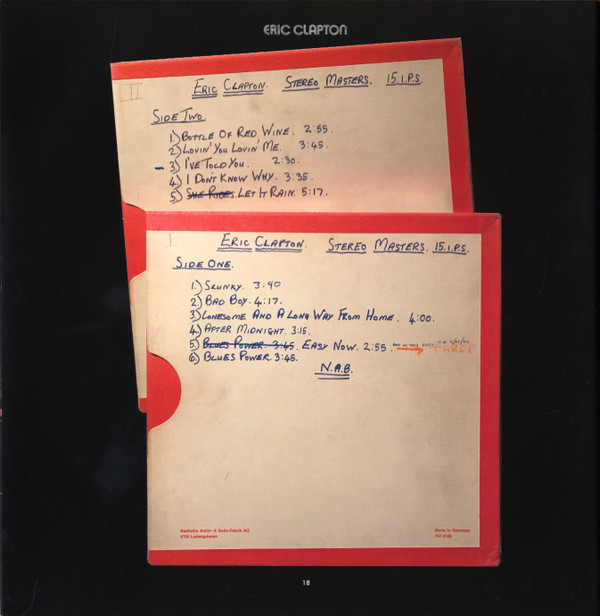 ERIC CLAPTON
II
ERIC CLAPTON. STEREO MASTERS. 15.I.P.S.
SIDE TWO
1) BOTTLE OF RED WINE. 2:55.
2) LOVIN' YOU LOVIN' ME. 3:45.
– 3) I'VE TOLD YOU. 2:30.
4) I DON'T KNOW WHY. 3:35.
5) SHE RIDES. LET IT RAIN. 5:17.
I
ERIC CLAPTON. STEREO MASTERS. 15.I.P.S.
SIDE ONE.
1) SLUNKY. 3:40
2) BAD BOY. 4:17.
3) LONESOME AND A LONG WAY FROM HOME. 4:00.
4) AFTER MIDNIGHT. 3:15.
5) BLUES POWER. 3:45. EASY NOW. 2:55.
6) BLUES POWER. 3:45.
N.A.B.
Badische Anilin- & Soda-Fabrik AG
6700 Ludwigshafen
Made in Germany
18